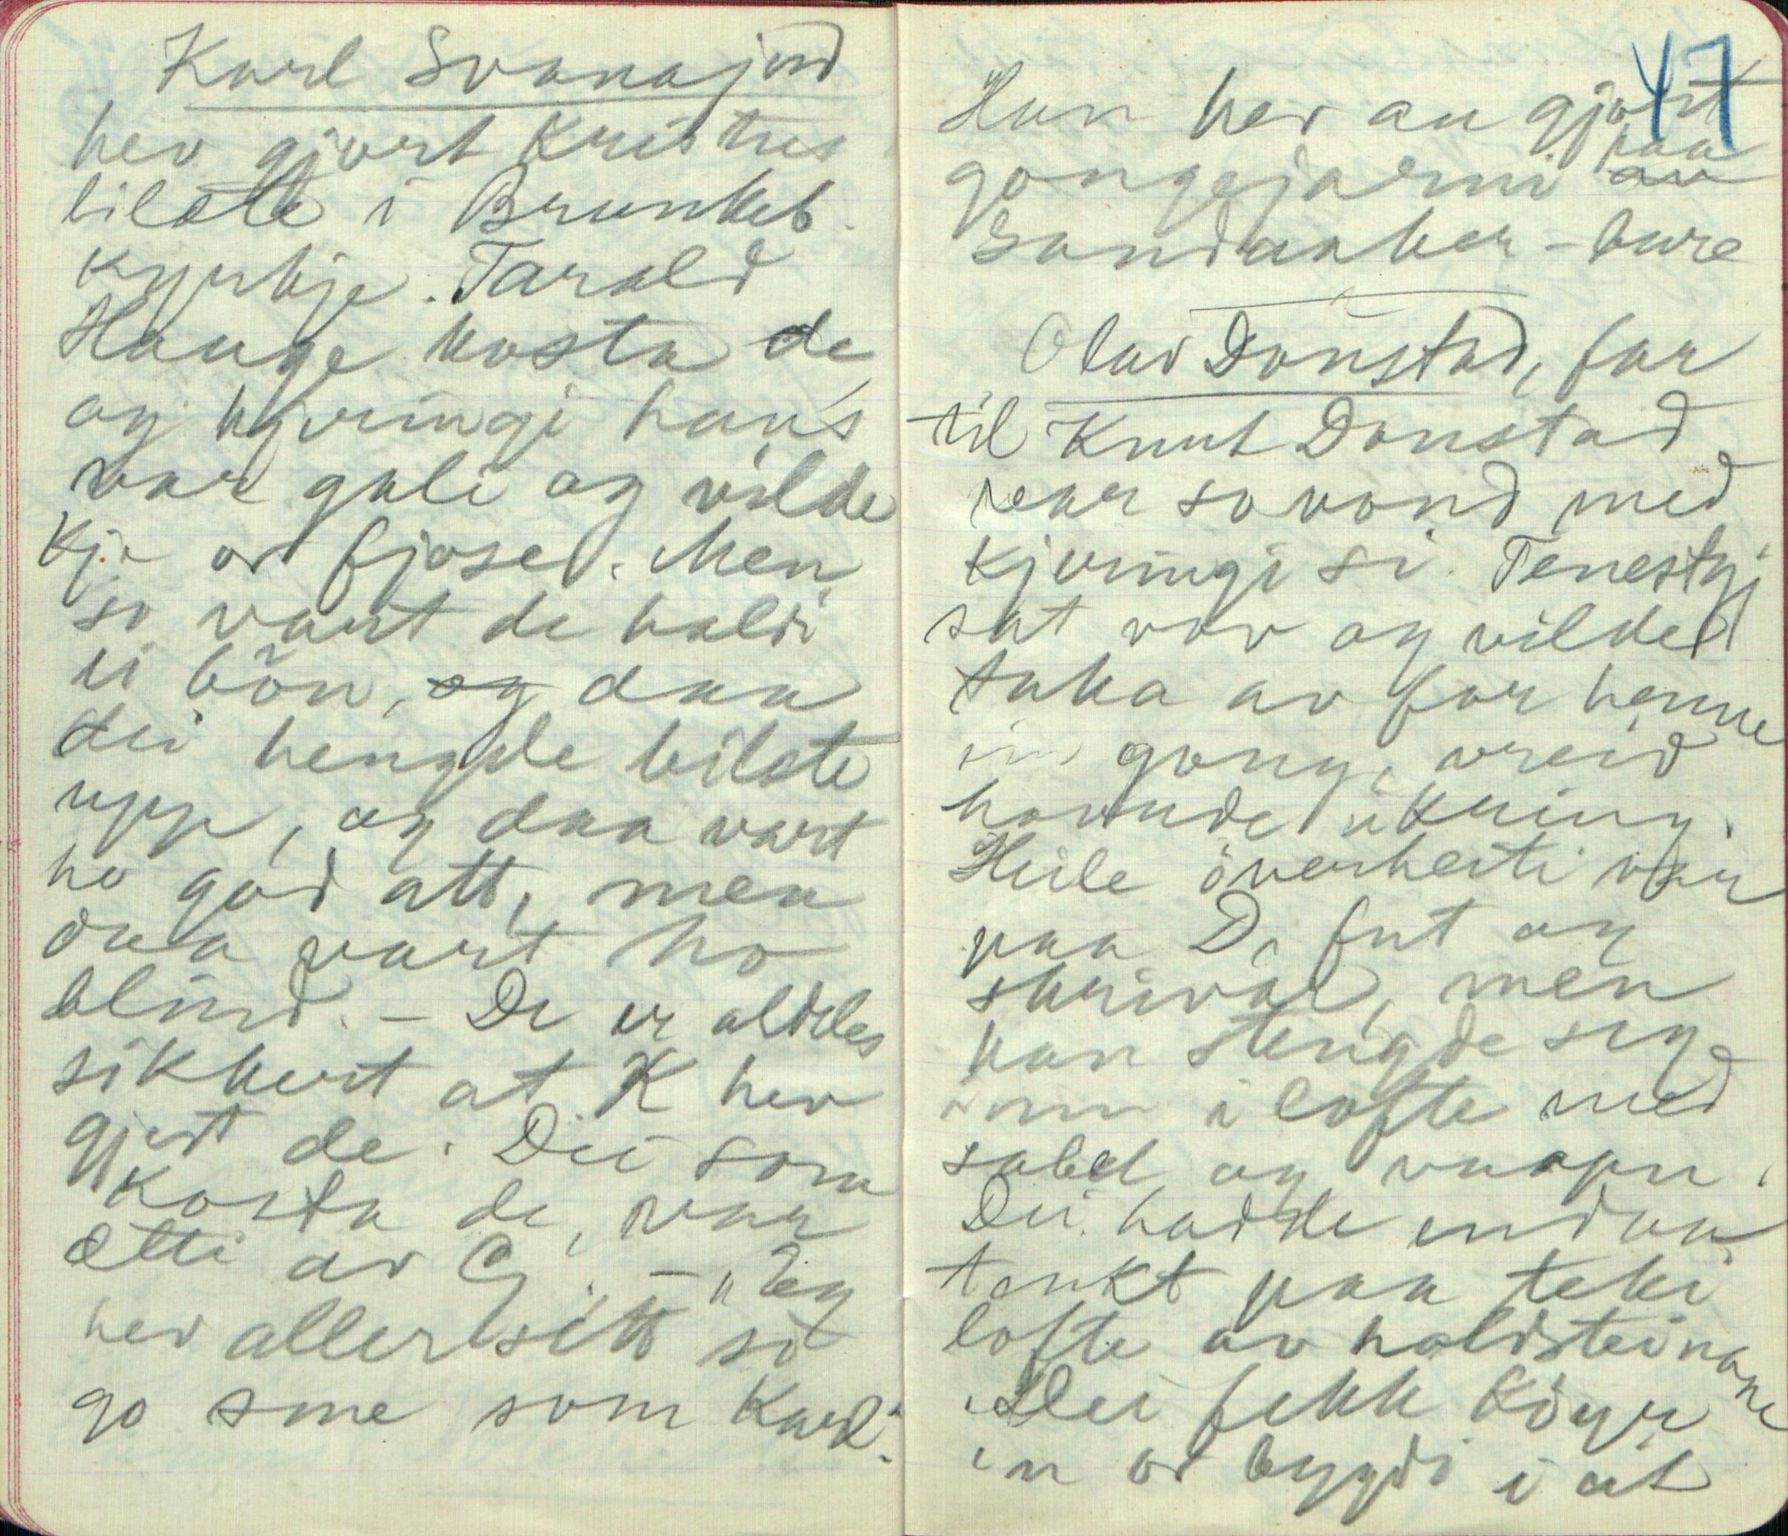 Karl Svanajord
hev gjort Kristus
bilæte i Brunkeb.
kyrkje. Tarald
Hauge kosta de
og kjeringi hans
var gali og vilde
kje or fjose. Men
so vart de haldi
ei bön, og daa
dei hengde bilæte
upp, og daa vart
ho god att, men
daa vart ho
blind. – De er aldeles
sikkert at K hev
gjort de. Dei som
kosta de, var
ætti av G. – "Eg
hev aller sétt so
go sme som Karl."
47
Han hev au gjort
gongejarni av paa
Sandaaker – bure
Olav Donstad, far
til Knut Donstad
var so vond med
kjeringi si. Tenestgj
sat vov og vilde
taka av for henne
gong, vreid
hovude ikring.
Heile överheiti var
paa D, fut og
skrivar, men
han stengde seg
inn i lofte med
sabel og vaapn.
Dei hadde endaa
tenkt paa teki
lofte av haldsteinane
Dei fekk Köyri
in or bygdi i at